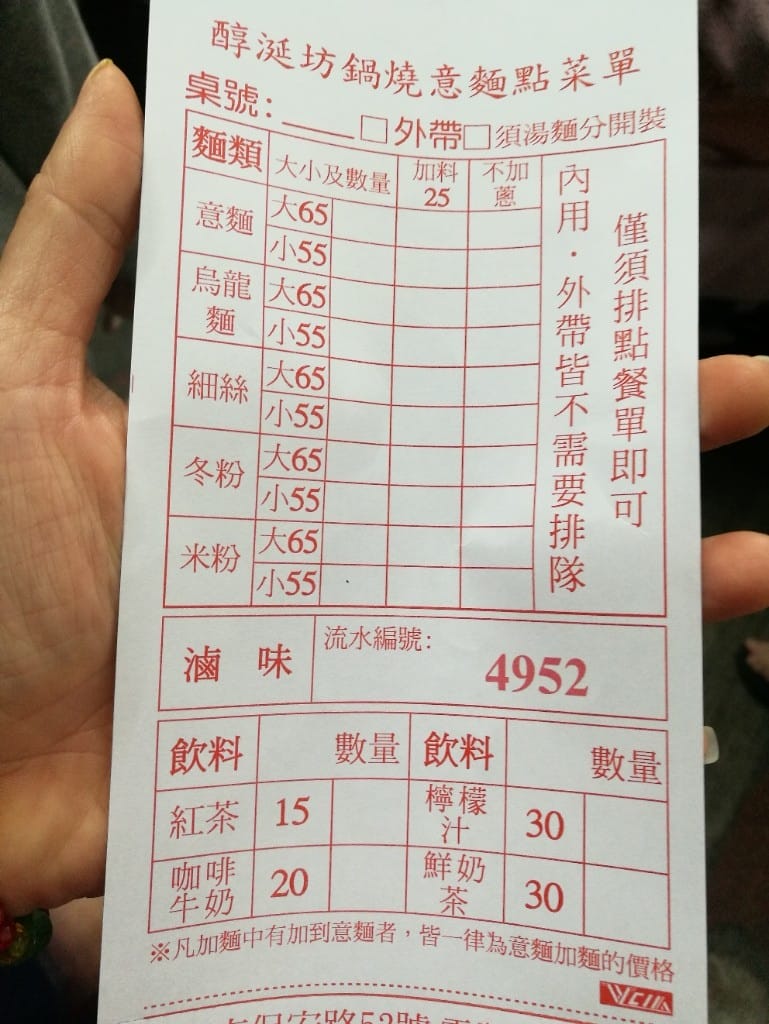 醇涎坊鍋燒意麵點菜單
桌號: ____ □外帶□須湯麵分開裝
麵類 大小及數量 加料25 不加蔥
意麵 大65
小55
烏龍麵 大65
小55
細絲 大65
小55
冬粉 大65
小55
米粉 大65
小55
僅須排點餐單即可
內用·外帶皆不需要排隊
滷 味 流水編號: 4952
飲料 數量 飲料 數量
紅茶 15 檸檬汁 30
咖啡牛奶 20 鮮奶茶 30
※凡加麵中有加到意麵者，皆一律為意麵加麵的價格
保安路53號